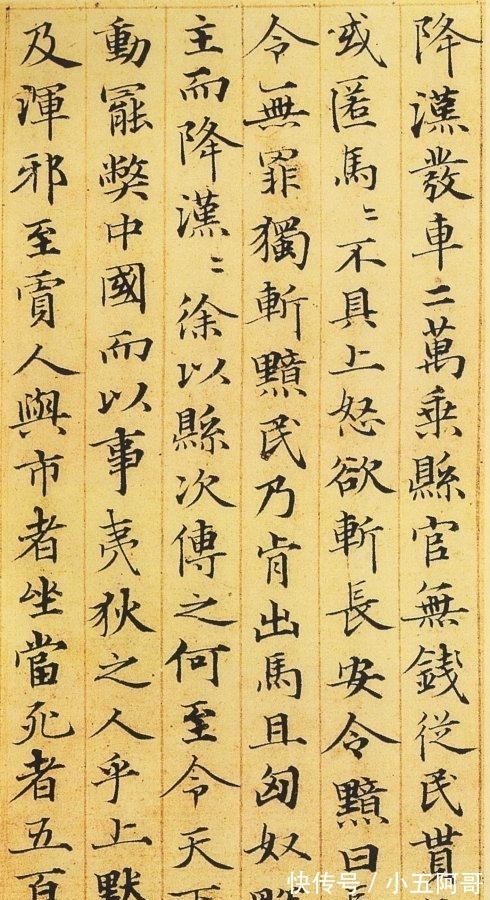 降漢發車二萬乘縣官無錢從民貰
或匿馬〻不具上怒欲斬長安令黯曰
令無罪獨斬黯民乃肯出馬且匈奴
主而降漢〻徐以縣次傳之何至令天下
動罷弊中國而以事夷狄之人乎上默
及渾邪至賈人與市者坐當死者五百
快传号 / 小五阿哥